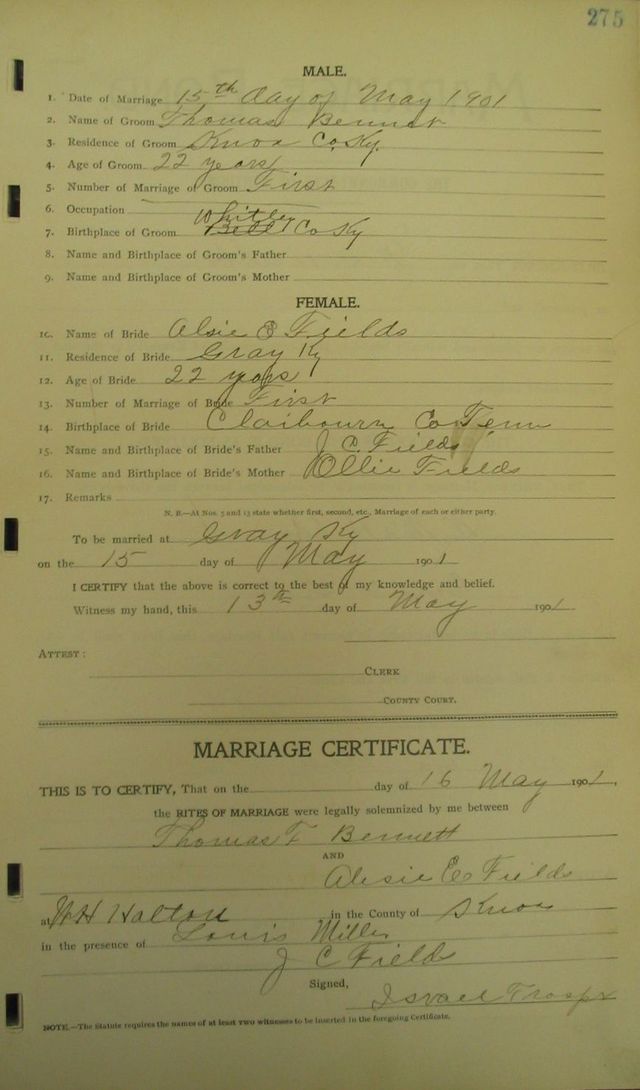 275
MALE.
1. Date of Marriage 15th day of May 1901
2. Name of Groom Thomas Bennet
3. Residence of Groom Knox Co. Ky.
4. Age of Groom 22 years
5. Number of Marriage of Groom First
6. Occupation
7. Birthplace of Groom Whitley Bell Co Ky
8. Name and Birthplace of Groom's Father
9. Name and Birthplace of Groom's Mother
FEMALE.
10. Name of Bride Alsie E Fields
11. Residence of Bride Gray Ky
12. Age of Bride 22 years
13. Number of Marriage of Bride First
14. Birthplace of Bride Claibourn Co Tenn
15. Name and Birthplace of Bride's Father J C. Fields
16. Name and Birthplace of Bride's Mother Ollie Fields
17. Remarks
N. B.—At Nos. 5 and 13 state whether first, second, etc., Marriage of each or either party.
To be married at Gray Ky
on the 15 day of May 1901
I CERTIFY that the above is correct to the best of my knowledge and belief.
Witness my hand, this 13th day of May 1901
ATTEST:
CLERK
COUNTY COURT.
MARRIAGE CERTIFICATE.
THIS IS TO CERTIFY, That on the day of 16 May 1901,
the RITES OF MARRIAGE were legally solemnized by me between
Thomas F Bennett
AND
Alesie E Fields
at W H Halton in the County of Knox
in the presence of Louis Miller
J C Field
Signed,
Israel Trosper
NOTE.—The Statute requires the names of at least two witnesses to be inserted in the foregoing Certificate.